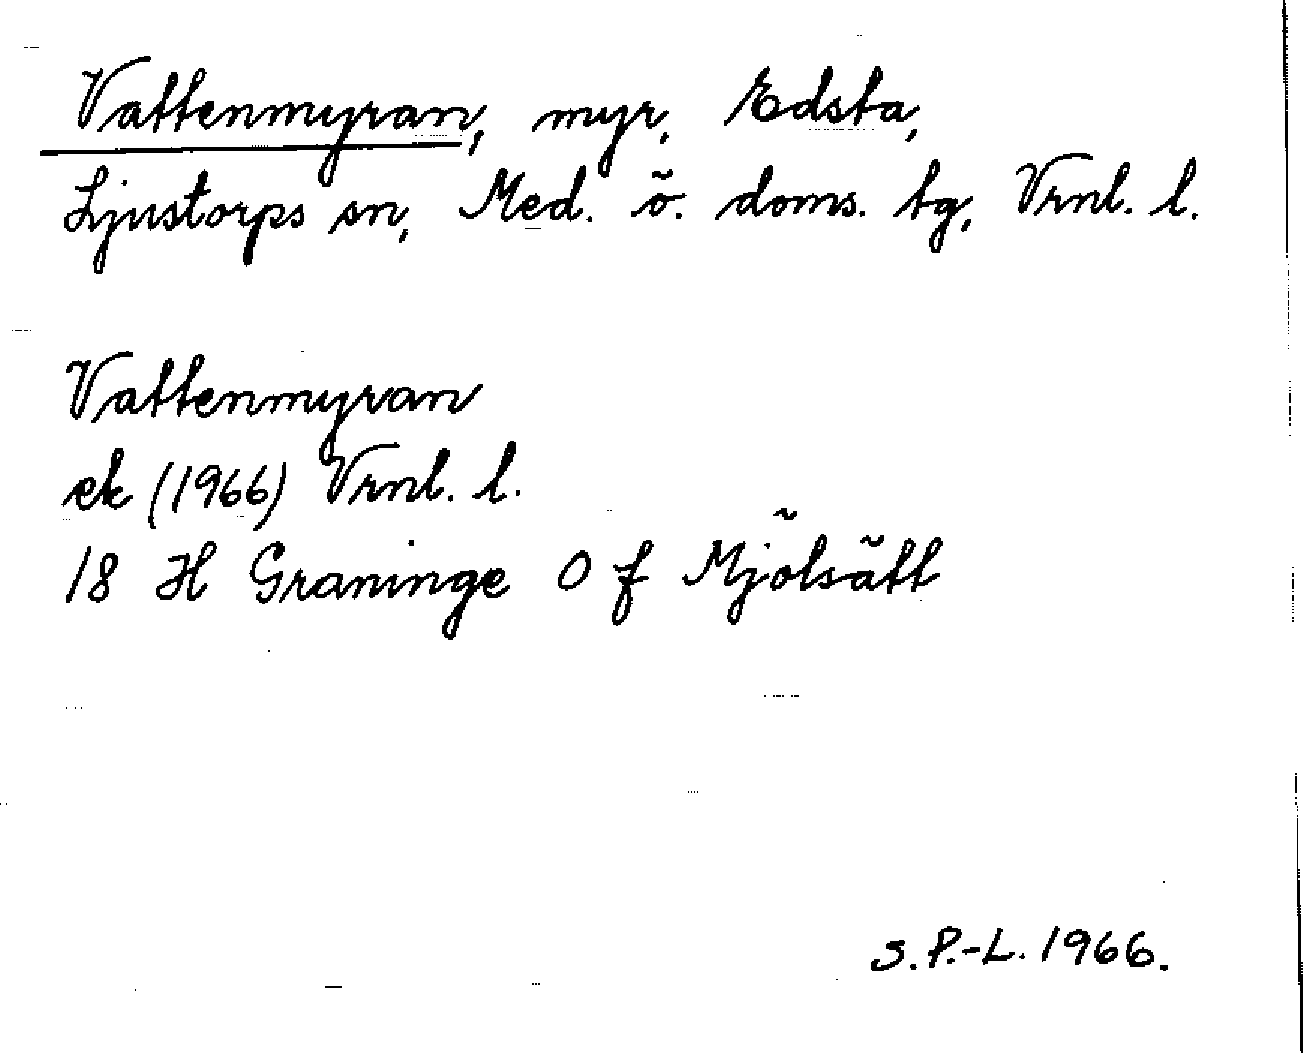 Vattenmyran, myr, Edsta,
Ljustorps sn, Med. ö. doms. tg, Vrnl. l.
Vattenmyran
ek (1966) Vrnl. l.
18 H Graninge 0 f Mjölsätt
S.P.-L. 1966.